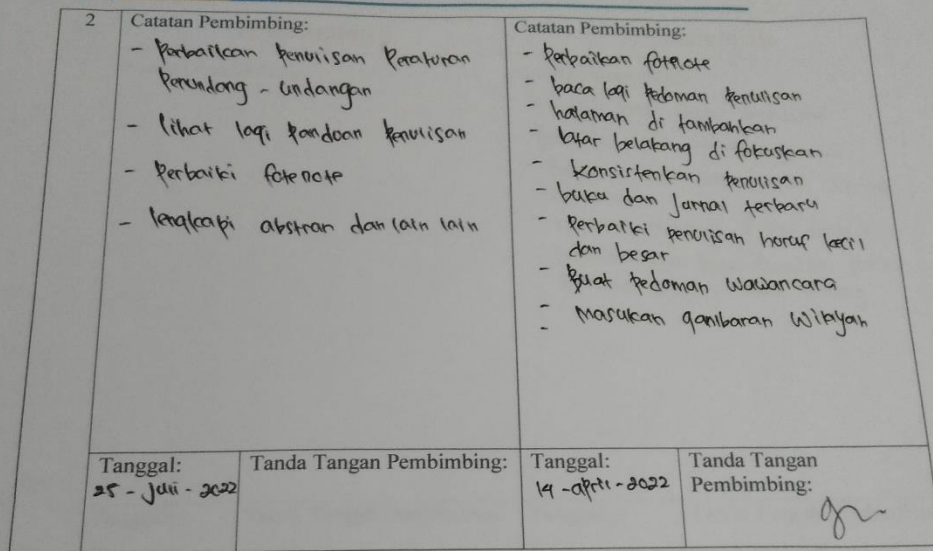 2
Catatan Pembimbing:
- Perbaikan Penulisan Peraturan
Perundang - undangan
- lihat lagi Panduan Penulisan
- Perbaiki fotenote
- lengkapi abstran dan lain lain
Catatan Pembimbing:
- Perbaikan fotenote
- baca lagi Pedoman Penulisan
- halaman di tambahkan
- latar belakang di fokuskan
- Konsistenkan Penulisan
- buku dan Jurnal terbaru
- Perbaiki penulisan huruf kecil
dan besar
- Buat Pedoman wawancara
- Masukan gambaran wilayah
-
Tanggal:
25 - Juli - 2022
Tanda Tangan Pembimbing:
Tanggal:
14 - april - 2022
Tanda Tangan
Pembimbing: